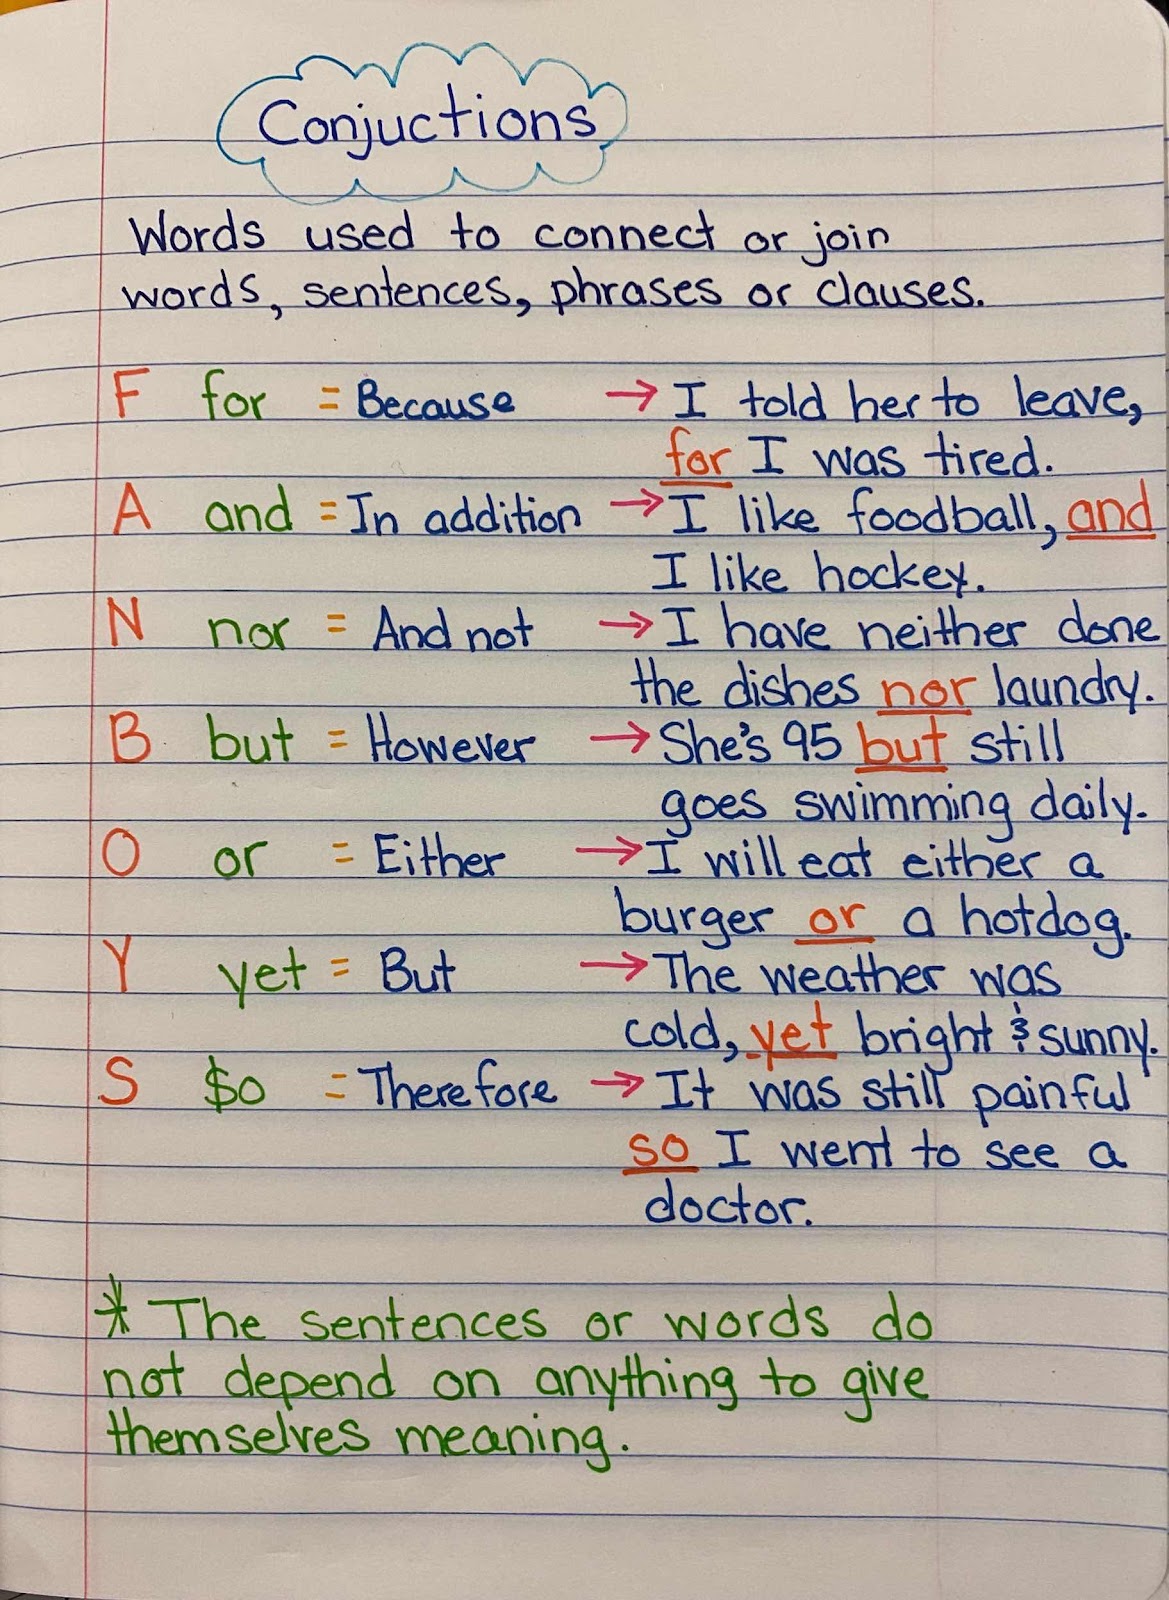 Conjuctions
Words used to connect or join
words, sentences, phrases or clauses.
F for = Because → I told her to leave,
for I was tired.
A and = In addition → I like foodball, and
I like hockey.
N nor = And not → I have neither done
the dishes nor laundry.
B but = However → She's 95 but still
goes swimming daily.
O or = Either → I will eat either a
burger or a hotdog.
Y yet = But → The weather was
cold, yet bright & sunny.
S $o = Therefore → It was still painful
so I went to see a
doctor.
* The sentences or words do
not depend on anything to give
themselves meaning.